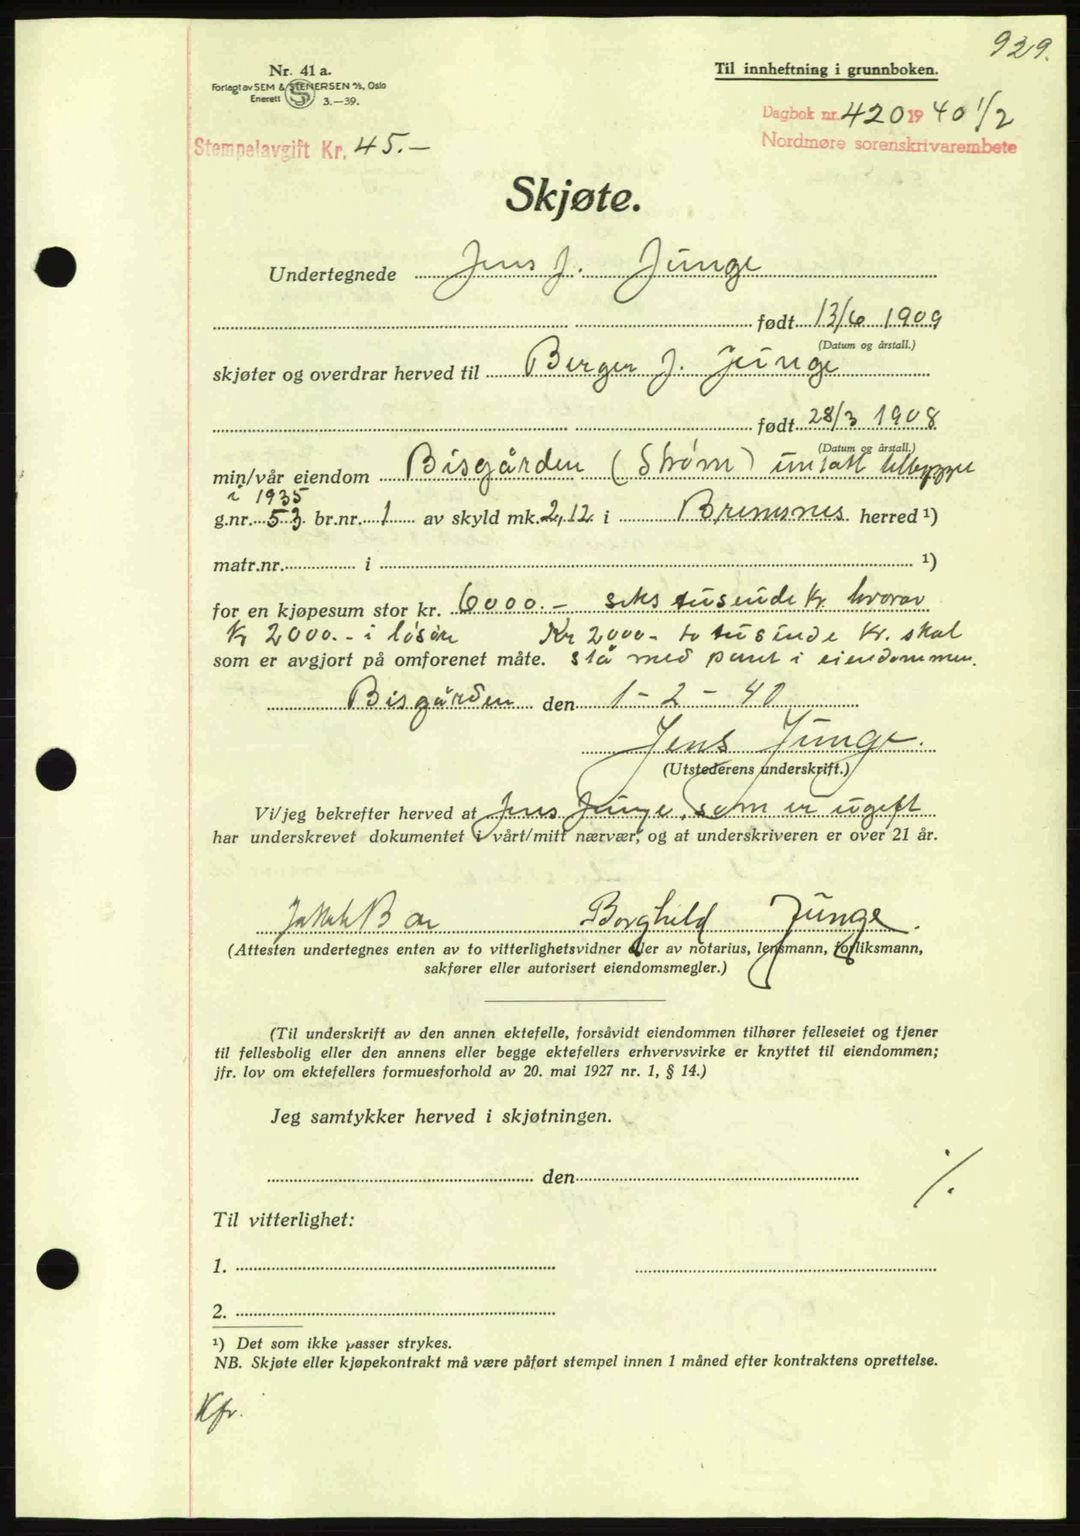 929.
Nr. 41 a.
Forlagt av SEM & STENERSEN A/S, Oslo
Enerett 3.–39.
Til innheftning i grunnboken.
Dagbok nr. 420 1940 1/2
Nordmøre sorenskrivarembete
Stempelavgift Kr. 45.–
Skjøte.
Undertegnede Jens J. Junge
født 13/6 1909
(Datum og årstall.)
skjøter og overdrar herved til Berger J. Junge
født 28/3 1908
(Datum og årstall.)
min/vår eiendom Bisgården (Strøm)
i 1935
g.nr. 53 br.nr. 1 av skyld mk. 2,12 i Bremsnes herred ¹)
matr.nr. i ¹)
for en kjøpesum stor kr. 6000.– seks tusende kr hvorav
Kr 2000.– i løsøre Kr 2000– to tusinde kr. skal
som er avgjort på omforenet måte. stå med pant i eiendommen.
Bisgården den 1 – 2 – 40
Jens Junge.
(Utstederens underskrift.)
Vi/jeg bekrefter herved at Jens Junge, som er ugift
har underskrevet dokumentet i vårt/mitt nærvær, og at underskriveren er over 21 år.
Borghild Junge.
(Attesten undertegnes enten av to vitterlighetsvidner eller av notarius, lensmann, forliksmann,
sakfører eller autorisert eiendomsmegler.)
(Til underskrift av den annen ektefelle, forsåvidt eiendommen tilhører felleseiet og tjener
til fellesbolig eller den annens eller begge ektefellers erhvervsvirke er knyttet til eiendommen;
jfr. lov om ektefellers formuesforhold av 20. mai 1927 nr. 1, § 14.)
Jeg samtykker herved i skjøtningen.
den
./.
Til vitterlighet:
1.
2.
¹) Det som ikke passer strykes.
NB. Skjøte eller kjøpekontrakt må være påført stempel innen 1 måned efter kontraktens oprettelse.
Kfr.